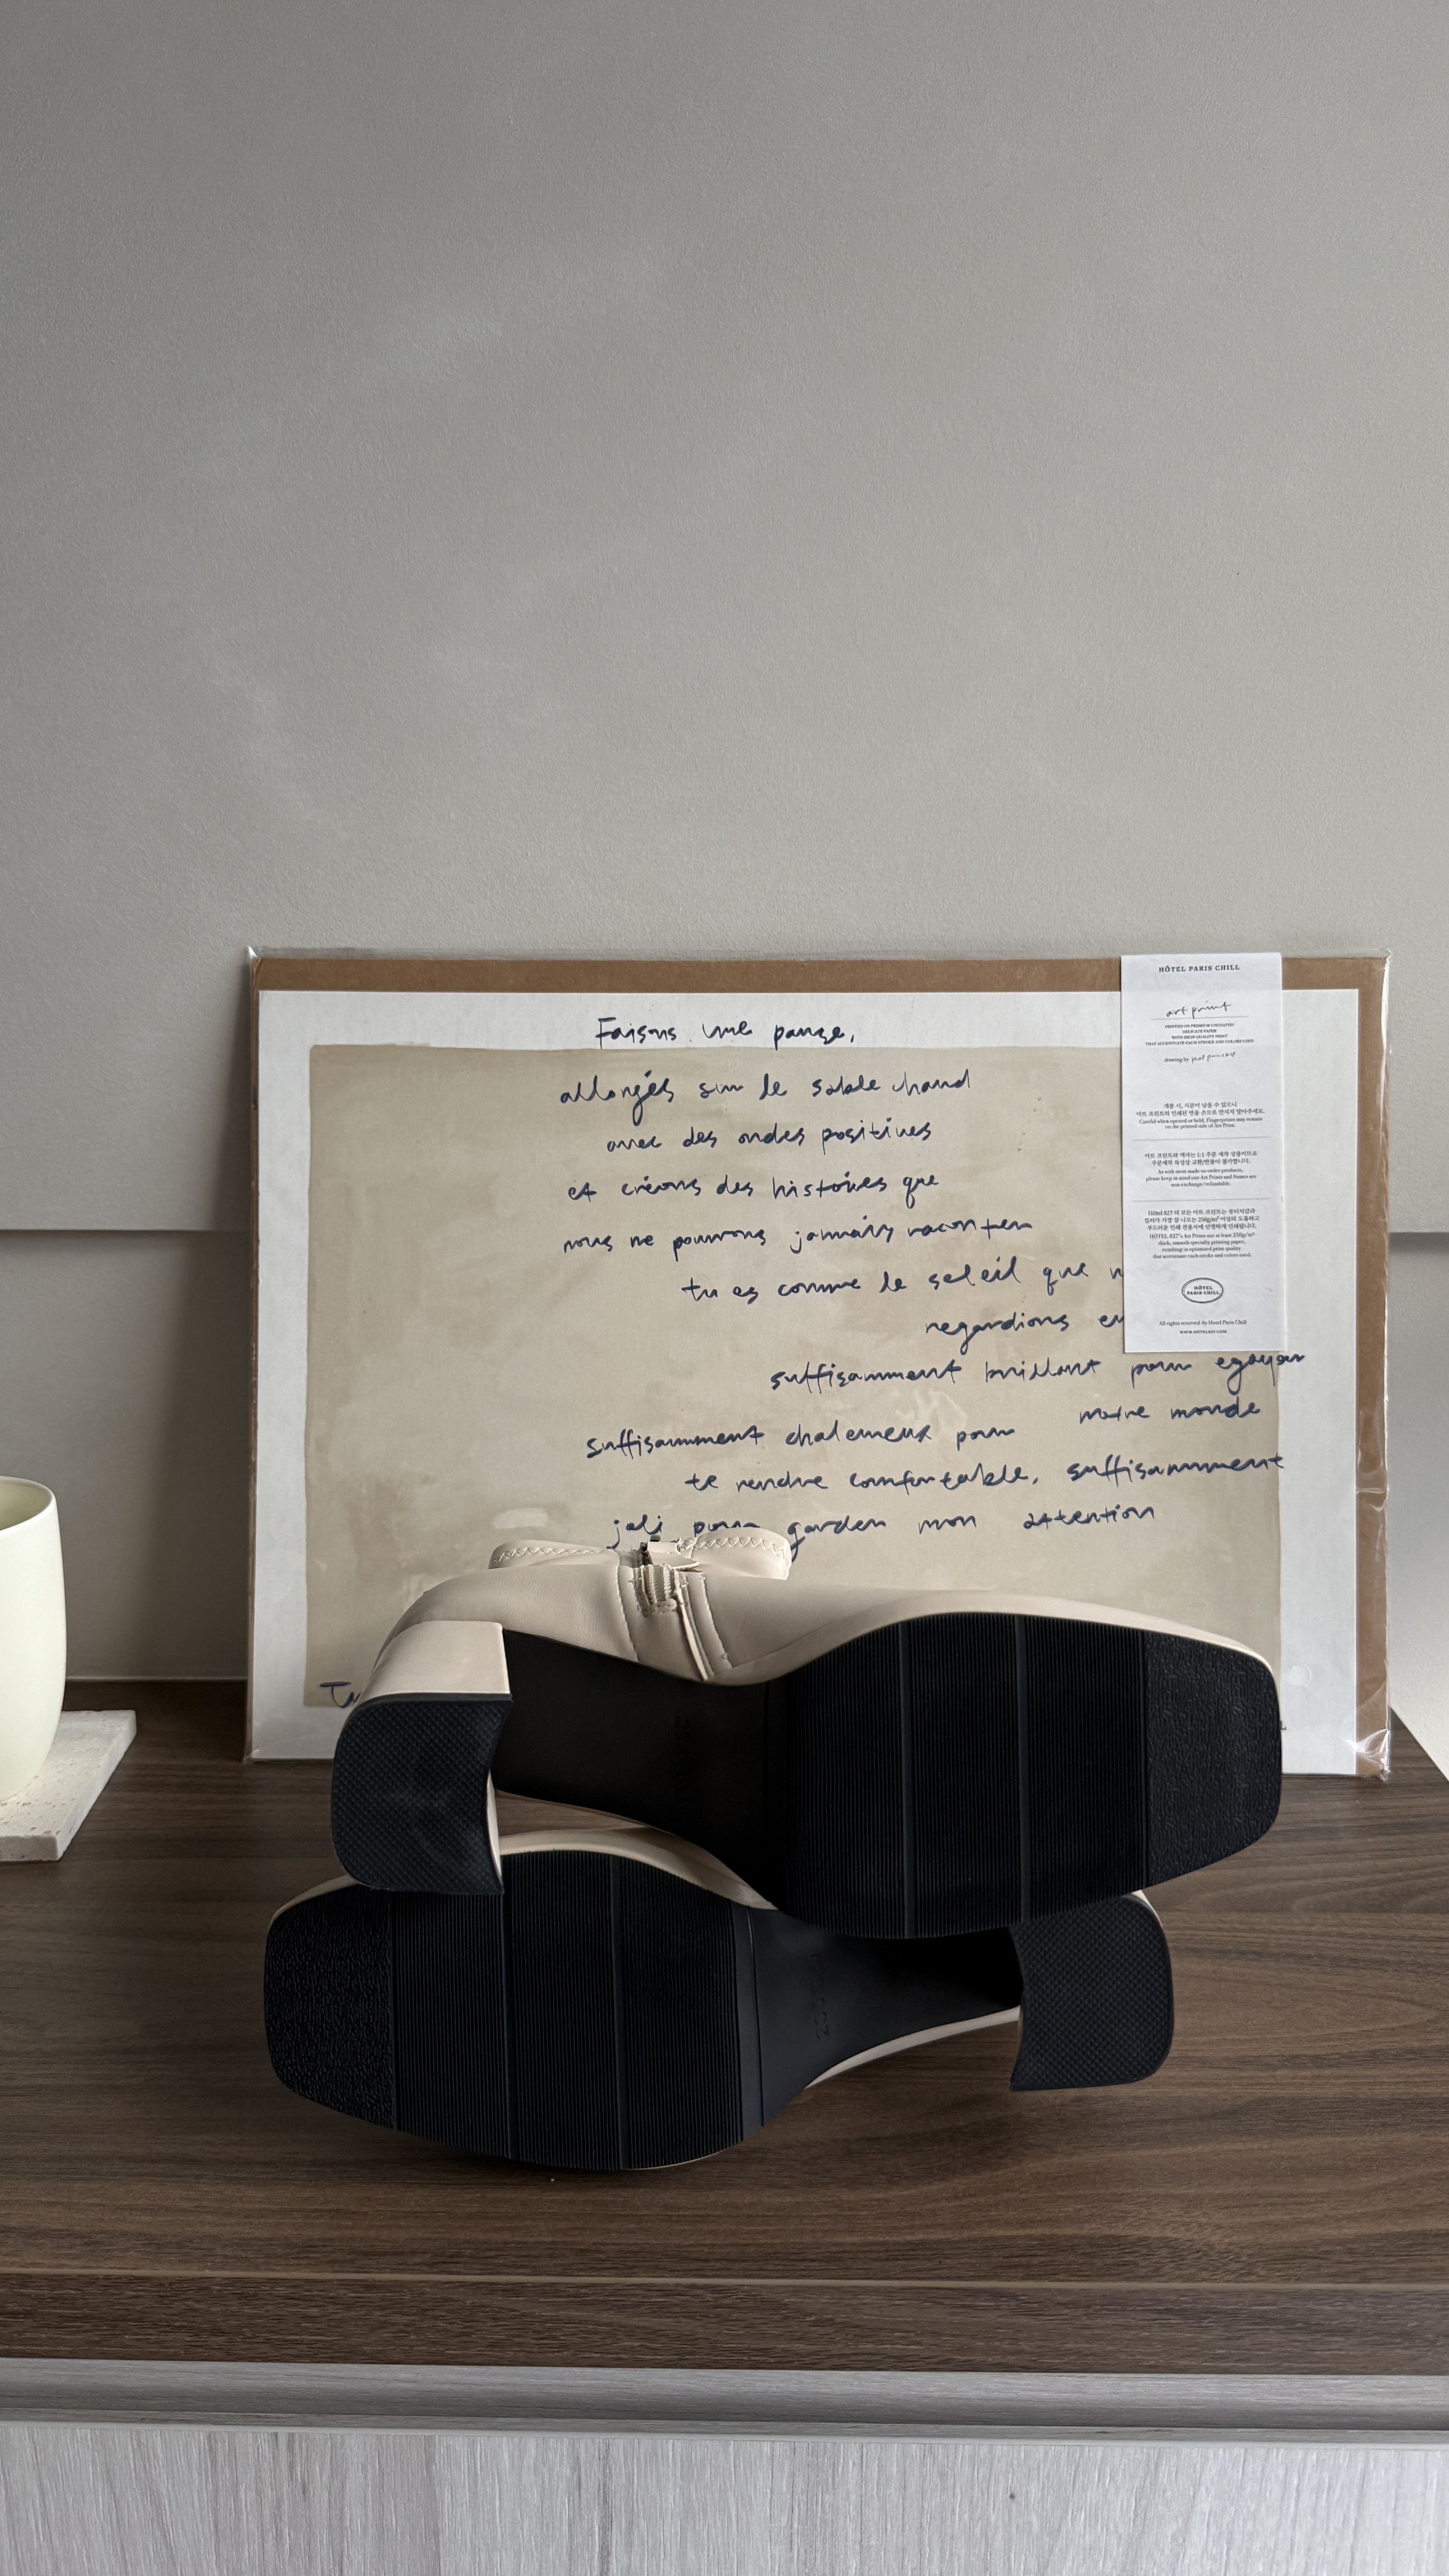 Faisons une pause,
allongés sur le sable chaud
avec des ondes positives
et créons des histoires que
nous ne pourrons jamais raconter
tu es comme le soleil que
regardions
suffisamment brillant pour egayer
notre monde
suffisamment chaleureux pour
te rendre comfortable, suffisamment
joli pour garder mon attention
HÔTEL PARIS CHILL
art print
PRINTED ON PREMIUM UNCOATED
DELICATE PAPER
WITH HIGH QUALITY PRINT
THAT ACCENTUATE EACH STROKE AND COLORS USED
drawing by
개봉 시, 지문이 남을 수 있으니
아트 프린트의 인쇄된 면을 손으로 만지지 말아주세요.
Careful when opened or held, Fingerprints may remain
on the printed side of Art Print.
아트 프린트와 액자는 1:1 주문 제작 상품이므로
주문제작 특성상 교환/반품이 불가합니다.
As with most made-to-order products,
please keep in mind our Art Prints and frames are
non-exchange/refundable.
Hôtel 827 의 모든 아트 프린트는 붓터치감과
컬러가 가장 잘 나오는 250g/m² 이상의 도톰하고
부드러운 인쇄 전용지에 선명하게 인쇄됩니다.
HÔTEL 827's Art Prints use at least 250g/m²
thick, smooth specialty printing paper,
resulting in optimized print quality
that accentuate each stroke and colors used.
HÔTEL
PARIS CHILL
All rights reserved by Hotel Paris Chill
WWW.HOTEL827.COM